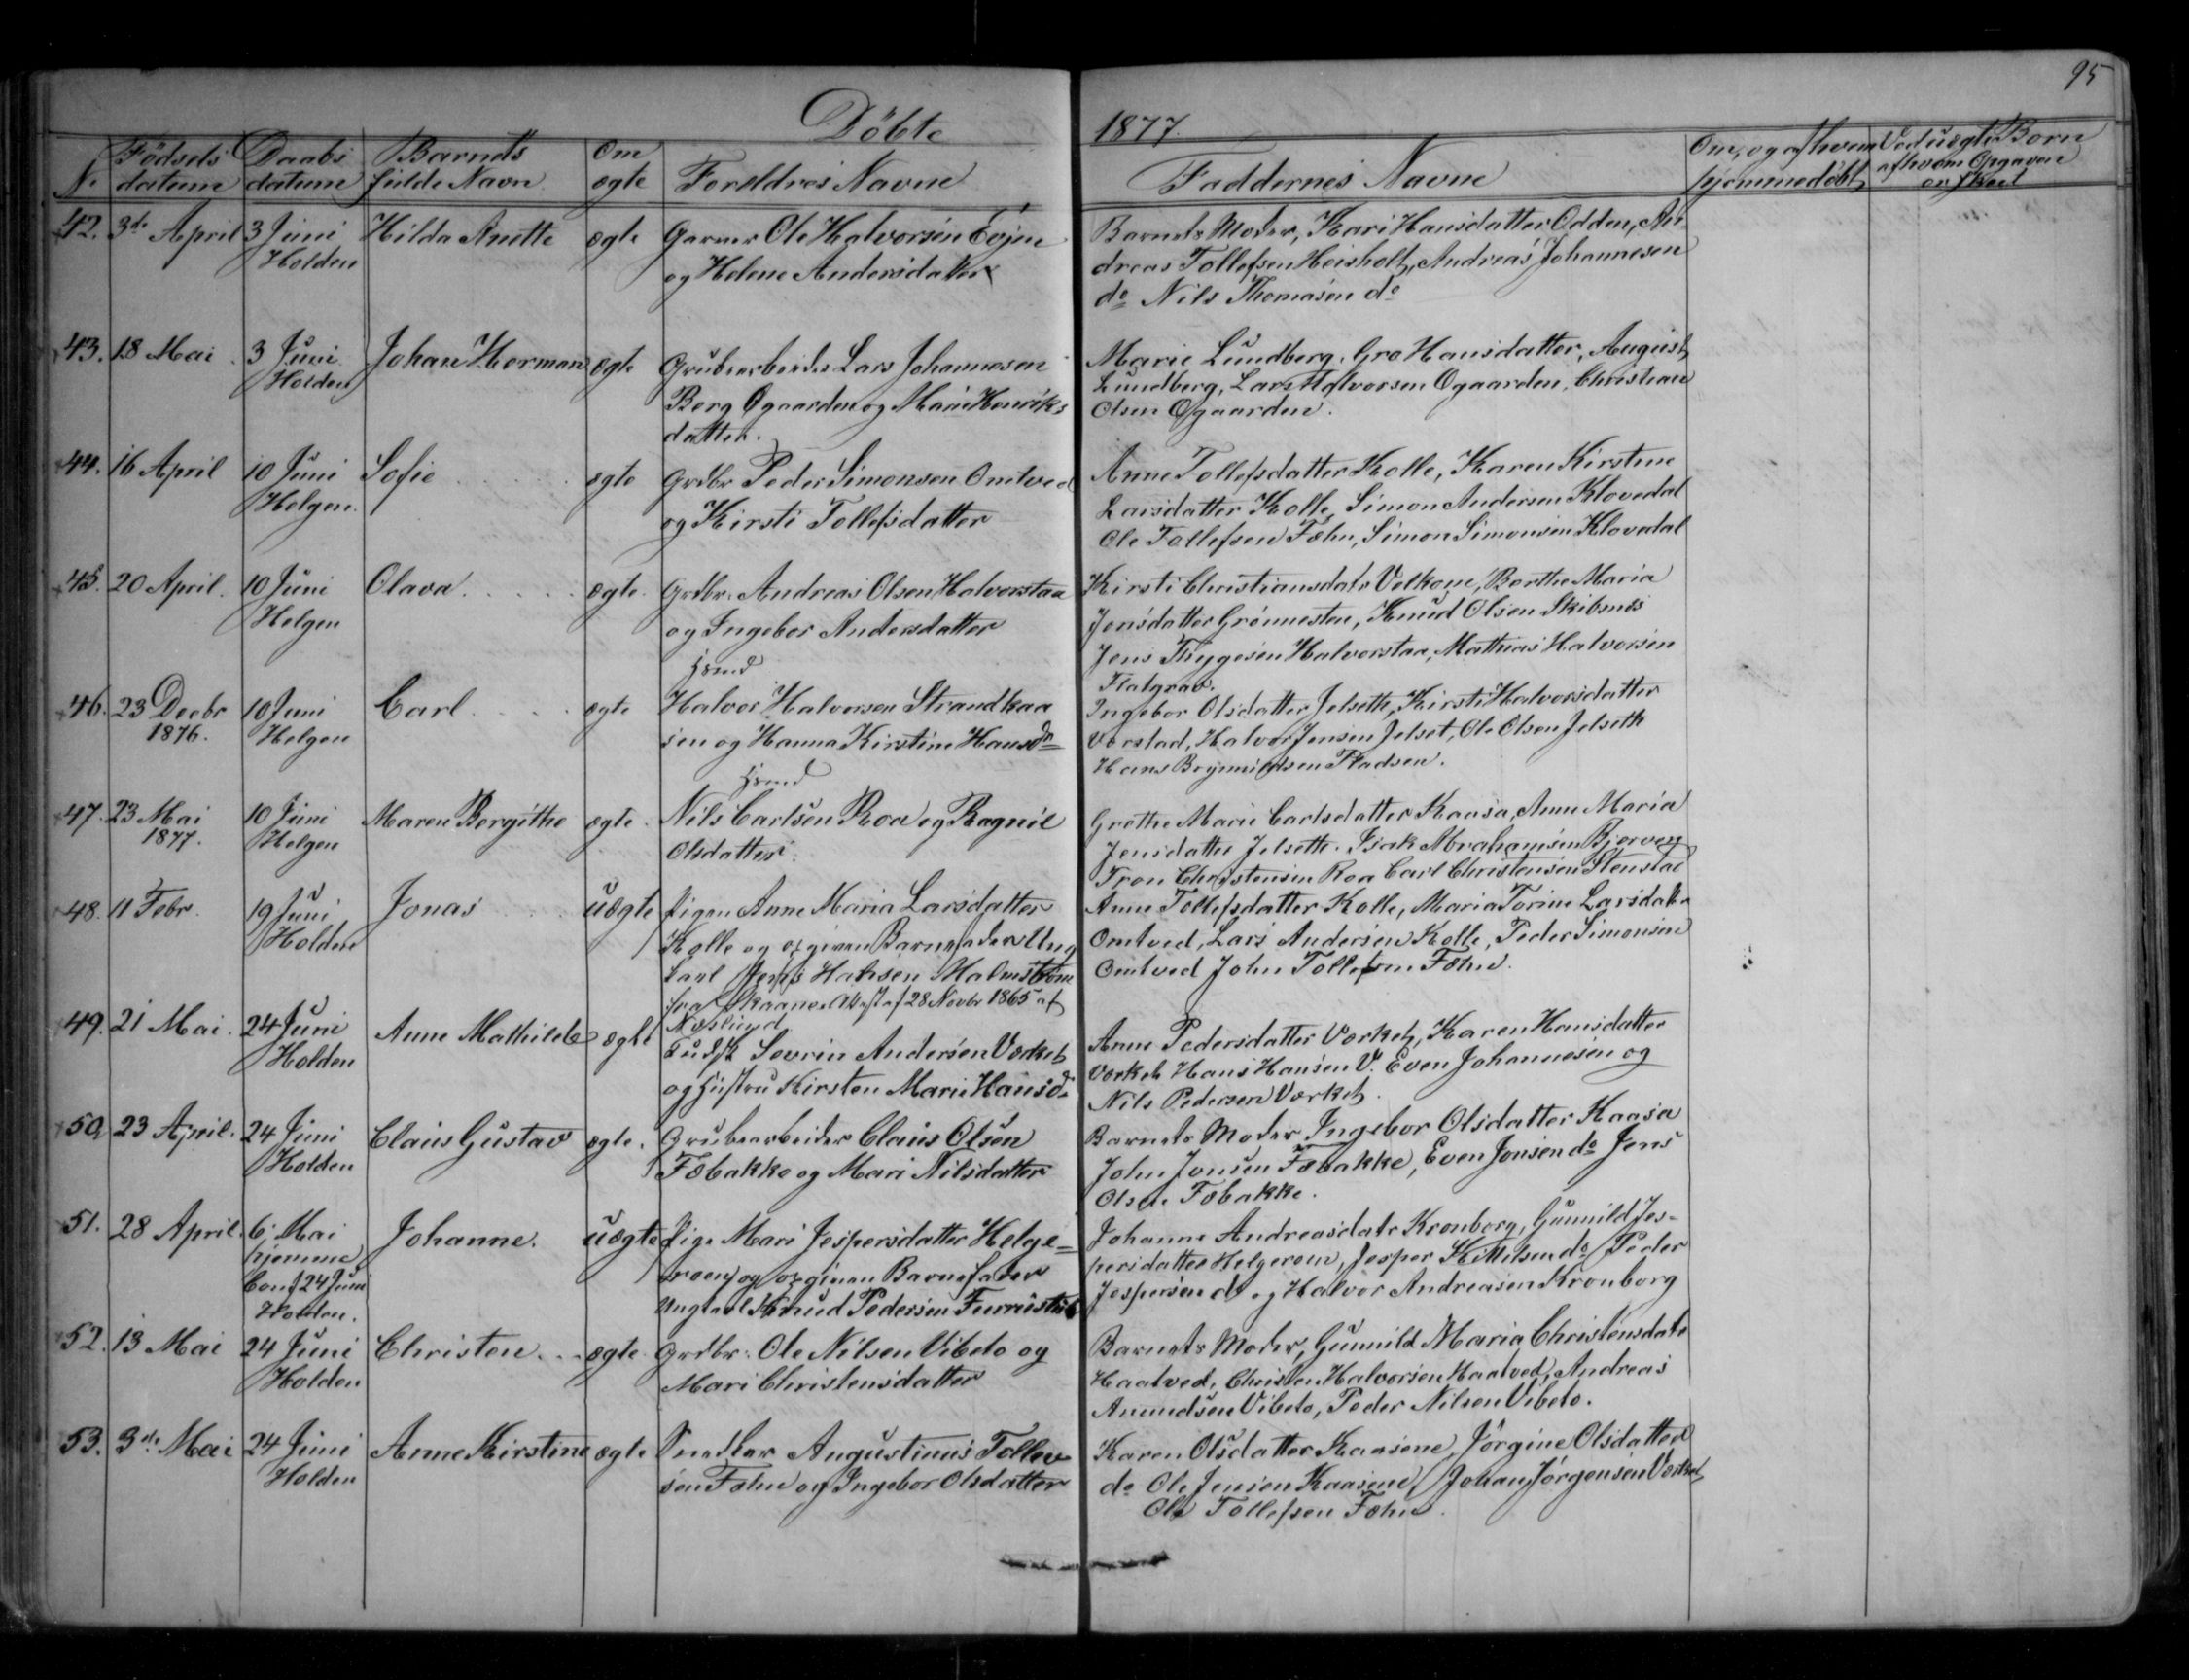 95
Döbte 1877.
No Födsels datum | Daabs datum | Barnets fulde Navn | Om ægte | Foreldres Navne | Faddernes Navne | Om, og af hvem hjemmedøbt | Ved uægte Born af hvem Opgaven er skeet
42. 3de April | 3 Juni Holden | Hilda Anette | ægte | Garver Ole Halvorsen Evju
og Helene Andersdatter
Barnets Moder, Kari Hansdatter Odden, An-
dreas Tollefsen Heisholt, Andreas Johannesen
do Nils Thomasen do
43. 18 Mai | 3 Juni Holden | Johan Herman | ægte | Grubearbeider Lars Johannesen
Berg Ogaarden og Mari Henriks
datter.
Marie Lundberg, Gro Hansdatter, August
Lundberg, Lars Halvorsen Ogaarden, Christian
Olsen Ogaarden.
44. 16 April | 10 Juni Helgen. | Sofie | ægte | Grdbr Peder Simonsen Omtved
og Kirsti Tollefsdatter
Anne Tollefsdatter Kolle, Karen Kirstine
Larsdatter Kolle, Simon Andersen Klovedal
Ole Tollefsen Fæhn, Simon Simonsen Klovedal
45. 20 April. | 10 Juni Helgen | Olava. | ægte. | Grdbr. Andreas Olsen Halvorstaa
og Ingebor Andersdatter
Kirsti Christiansdatr Vetkoye, Berthe Maria
Jensdatter Grönnesten, Knud Olsen Skibsnes
Jens Thygesen Halvorstaa, Mathias Halvorsen
Flatgrav.
46. 23 Decbr 1876. | 10 Juni Helgen | Carl | ægte | Hsmd
Halvor Halvorsen Strandkaa
sen og Hanna Kirstine Hansdr
Ingebor Olsdatter Jelseth, Kirsti Halvorsdatter
Verstad, Halvor Jensen Jelset, Ole Olsen Jelseth
Hans Brynnildsen Pladsen.
47. 23 Mai 1877. | 10 Juni Helgen | Maren Borgithe | ægte. | Hsmd
Nils Carlsen Roa og Ragnil
Olsdatter.
Grethe Marie Carlsdatter Kaasa, Anne Maria
Jensdatter Jelseth. Isak Abrahamsen Bjerven
Tron Christensen Roa Carl Christensen Stenstad
48. 11 Febr. | 19 Juni Holden | Jonas | uægte | Pigen Anne Maria Larsdatter
Kolle og opgiven Barnefader Ung
karl Jeppe Hansen Malmström
fra Skaane. Attest af 28 Novbr 1865 af
Næslund
Anne Tollefsdatter Kolle, Maria Torine Larsdatr
Omtved, Lars Andersen Kolle, Peder Simonsen
Omtved John Tollefsen Fæhn.
49. 21 Mai. | 24 Juni Holden | Anne Mathilde | ægte | Tudsk Sevrin Andersen Værket
og Hustru Kirsten Marie Hansdr
Anne Pedersdatter Værket, Karen Hansdatter
Værket Hans Hansen V. Even Johannesen og
Nils Pedersen Værket.
50. 23 April. | 24 Juni Holden | Claus Gustav | ægte. | Grubearbeider Claus Olsen
Fæbakke og Mari Nilsdatter
Barnets Moder Ingebor Olsdatter Kaasa
John Jonsen Fæbakke, Even Jonsen do Jens
Olsen Fæbakke.
51. 28 April. | 6 Mai hjemme Conf 24 Juni Holden. | Johanne. | uægte | Pige Mari Jespersdatter Helge=
roen og opgiven Barnefader
Ungkarl Knud Pedersen
Johanne Andreasdatr Kronborg, Gunnild Jes-
persdatter Helgeroen, Jesper Kittilsen do Peder
Jespersen do og Halvor Andreasen Kronborg
52. 13 Mai | 24 Juni Holden | Christen | ægte. | Grdbr: Ole Nilsen Vibeto og
Mari Christensdatter
Barnets Moder, Gunnild Maria Christensdatr
Haatved, Christen Halvorsen Haatved, Andreas
Amundsen Vibeto, Peder Nilsen Vibeto.
53. 3de Mai | 24 Juni Holden | Anne Kirstine | ægte | Snedker Augustinus Tollev
sen Fæhn og Ingebor Olsdatter
Karen Olsdatter Kaasene, Jörgine Olsdatter
do Ole Jensen Kaasene, Johan Jörgensen Værket
Ole Tollefsen Fæhn.